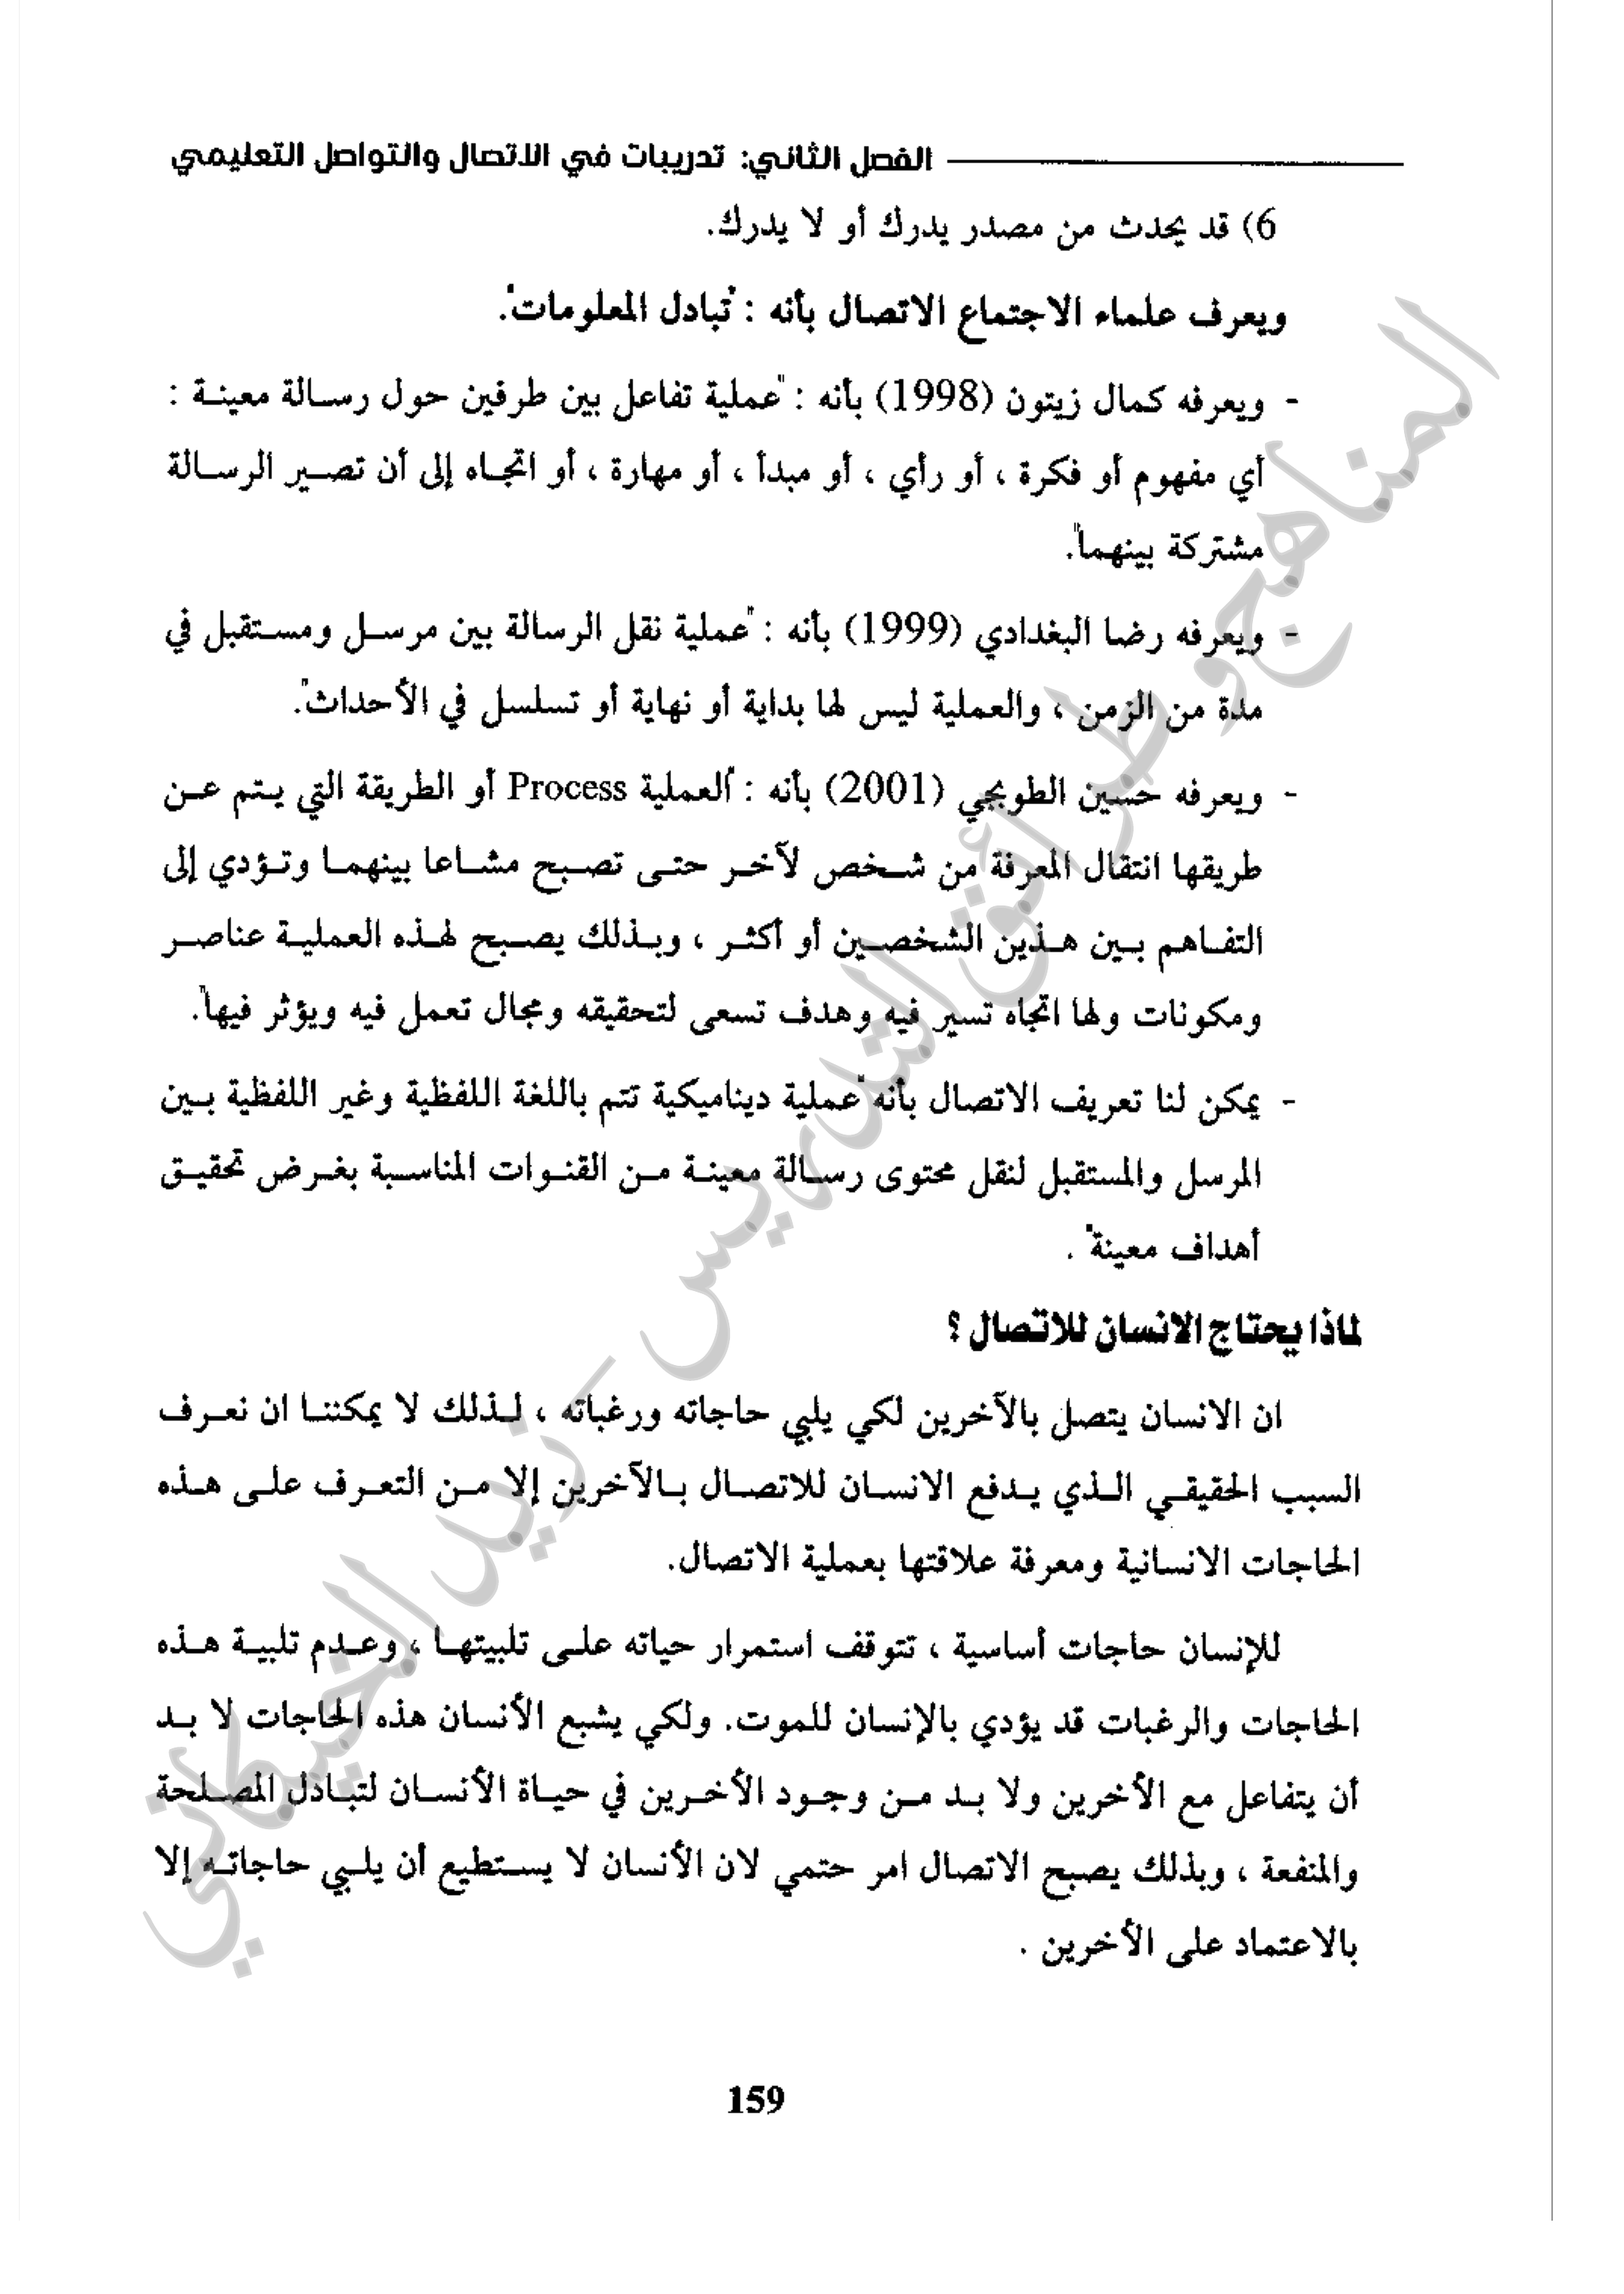 الفصل الثاني: تدريبات في الاتصال والتواصل التعليمي
6) قد يحدث من مصدر يدرك أو لا يدرك.
ويعرف علماء الاجتماع الاتصال بأنه : "تبادل المعلومات".
- ويعرفه كمال زيتون (1998) بأنه : "عملية تفاعل بين طرفين حول رسالة معينة :
أي مفهوم أو فكرة ، أو رأي ، أو مبدأ ، أو مهارة ، أو اتجاه إلى أن تصير الرسالة
مشتركة بينهما".
- ويعرفه رضا البغدادي (1999) بأنه : "عملية نقل الرسالة بين مرسل ومستقبل في
مدة من الزمن ، والعملية ليس لها بداية أو نهاية أو تسلسل في الأحداث".
- ويعرفه حسين الطوبجي (2001) بأنه : "العملية Process أو الطريقة التي يتم عن
طريقها انتقال المعرفة من شخص لآخر حتى تصبح مشاعا بينهما وتؤدي إلى
التفاهم بين هذين الشخصين أو أكثر ، وبذلك يصبح لهذه العملية عناصر
ومكونات ولها اتجاه تسير فيه وهدف تسعى لتحقيقه ومجال تعمل فيه ويؤثر فيها".
- يمكن لنا تعريف الاتصال بأنه "عملية ديناميكية تتم باللغة اللفظية وغير اللفظية بين
المرسل والمستقبل لنقل محتوى رسالة معينة من القنوات المناسبة بغرض تحقيق
أهداف معينة" .
لماذا يحتاج الانسان للاتصال ؟
ان الانسان يتصل بالآخرين لكي يلبي حاجاته ورغباته ، لذلك لا يمكننا ان نعرف
السبب الحقيقي الذي يدفع الانسان للاتصال بالآخرين إلا من التعرف على هذه
الحاجات الانسانية ومعرفة علاقتها بعملية الاتصال.
للإنسان حاجات أساسية ، تتوقف استمرار حياته على تلبيتها ، وعدم تلبية هذه
الحاجات والرغبات قد يؤدي بالإنسان للموت. ولكي يشبع الأنسان هذه الحاجات لا بد
أن يتفاعل مع الأخرين ولا بد من وجود الأخرين في حياة الأنسان لتبادل المصلحة
والمنفعة ، وبذلك يصبح الاتصال امر حتمي لان الأنسان لا يستطيع أن يلبي حاجاته إلا
بالاعتماد على الأخرين .
159
المناهج وطرائق التدريس - زيد الخيكاني